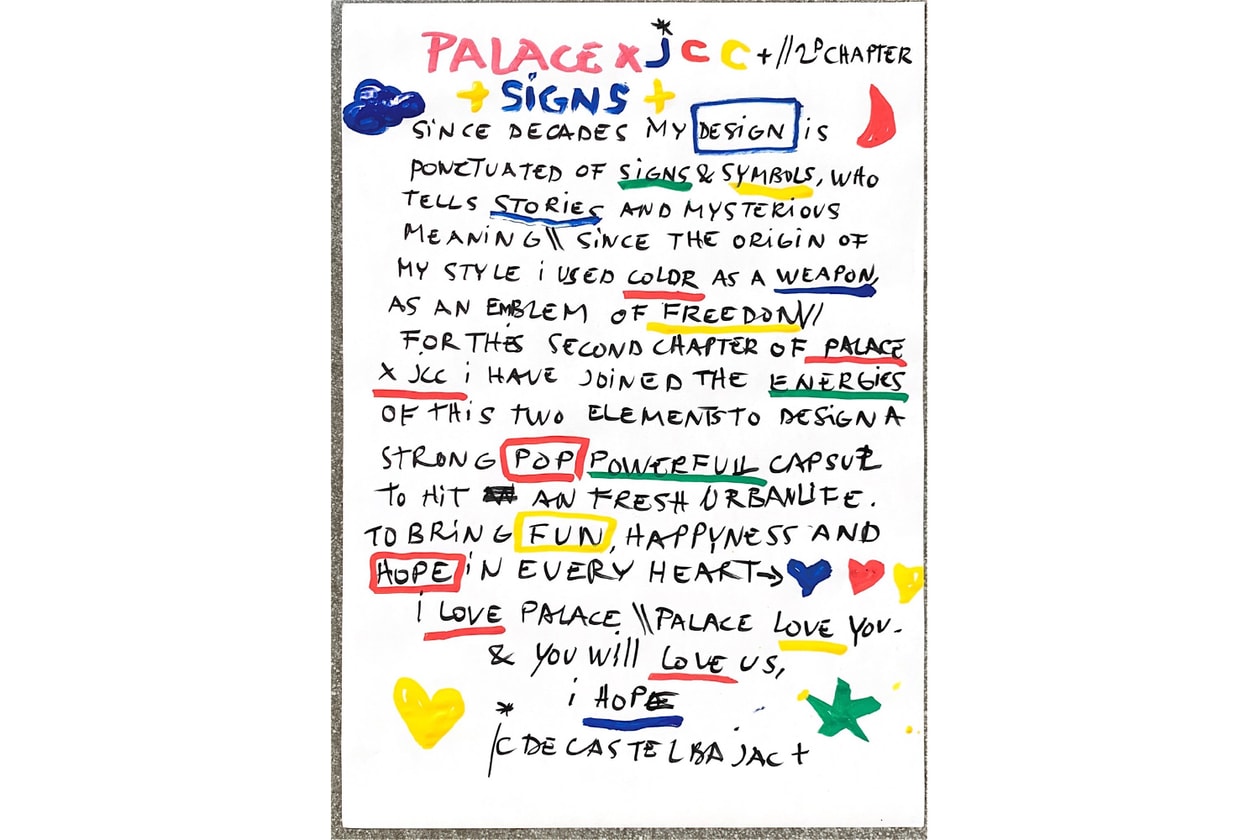 PALACE X JCC + // 2D CHAPTER
+ SIGNS +
SINCE DECADES MY DESIGN IS
PONCTUATED OF SIGNS & SYMBOLS, WHO
TELLS STORIES AND MYSTERIOUS
MEANING \\ SINCE THE ORIGIN OF
MY STYLE i USED COLOR AS A WEAPON,
AS AN EMBLEM OF FREEDOM //
FOR THIS SECOND CHAPTER OF PALACE
X JCC i HAVE JOINED THE ENERGIES
OF THIS TWO ELEMENTS TO DESIGN A
STRONG POP POWERFULL CAPSULE
TO HIT AN FRESH URBANLIFE.
TO BRING FUN, HAPPYNESS AND
HOPE IN EVERY HEART →
i LOVE PALACE \\ PALACE LOVE YOU -
& YOU Will LOVE US,
i HOPE
JC DE CASTELBAJAC +